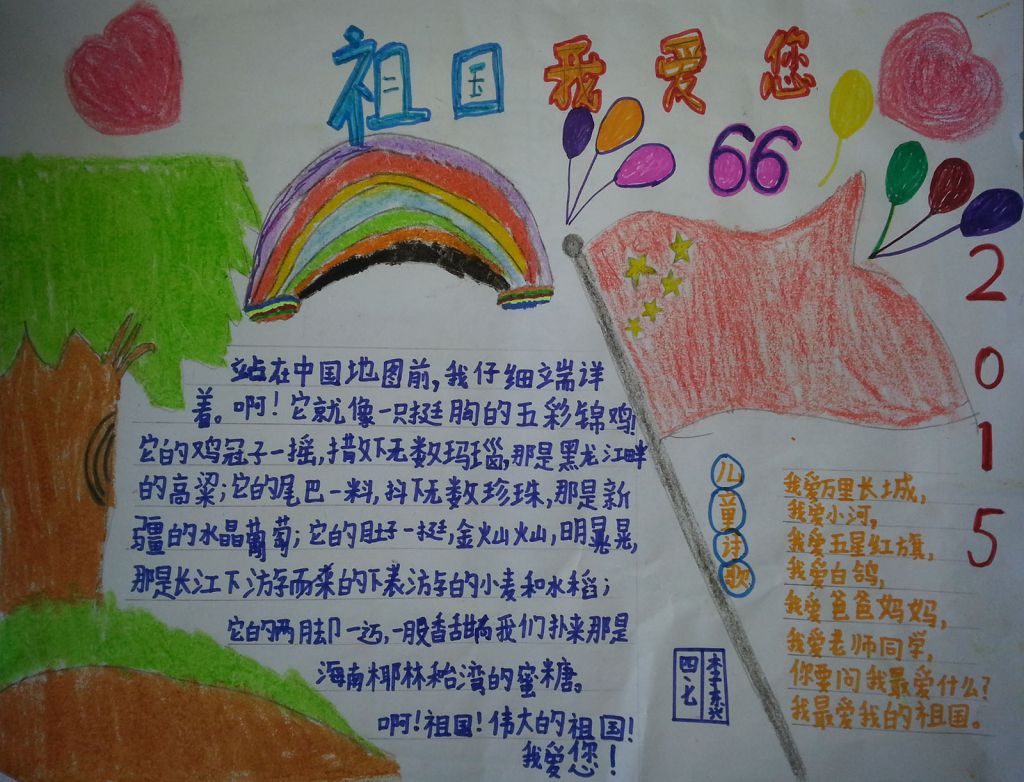 祖国我爱您
66
2015
站在中国地图前,我仔细立端详
着。啊!它就像一只挺胸的五彩锦鸡!
它的鸡冠子一摇,措下无数玛瑙,那是黑龙江畔
的高粱;它的尾巴一料,抖下无数珍珠,那是新
疆的水晶葡萄;它的肚子一挺,金灿灿,明晃晃,
那是长江下游字而来的下表游字的小麦和水稻;
它的两脚一迈,一股香甜向我们扑来那是
海南椰林和台湾的蜜糖。
啊!祖国!伟大的祖国!
我爱您!
儿童诗歌
我爱万里长城,
我爱小河,
我爱五星红旗,
我爱白鸽,
我爱爸爸妈妈,
我爱老师同学,
你要问我最爱什么?
我最爱我的祖国。
四、七